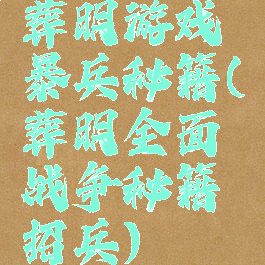 葬明游戏
暴兵秘籍(
葬明全面
战争秘籍
招兵)